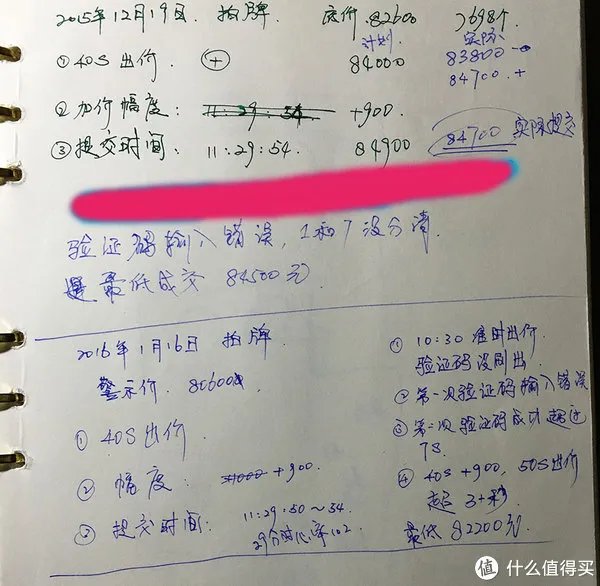 2015年12月19日. 拍牌. 底价.82600 7698个
计划 实际
① 40S 出价. + 84000 83800
84700. +
② 加价幅度: 11:29:54 +900.
84700 实际提交
③ 提交时间. 11:29:54. 84900
验证码输入错误, 1和7没分清.
最低成交 84500元.
2016年1月16日 拍牌
警示价. 80600
① 40S出价.
② 幅度: +900.
③ 提交时间: 11:29:50~54.
① 10:30 准时出价.
验证码没刷出
② 第一次验证码输入错误
③ 第一次验证码成功超过
7S.
④ 40S +900, 50S出价
最低 82200元.
值 什么值得买